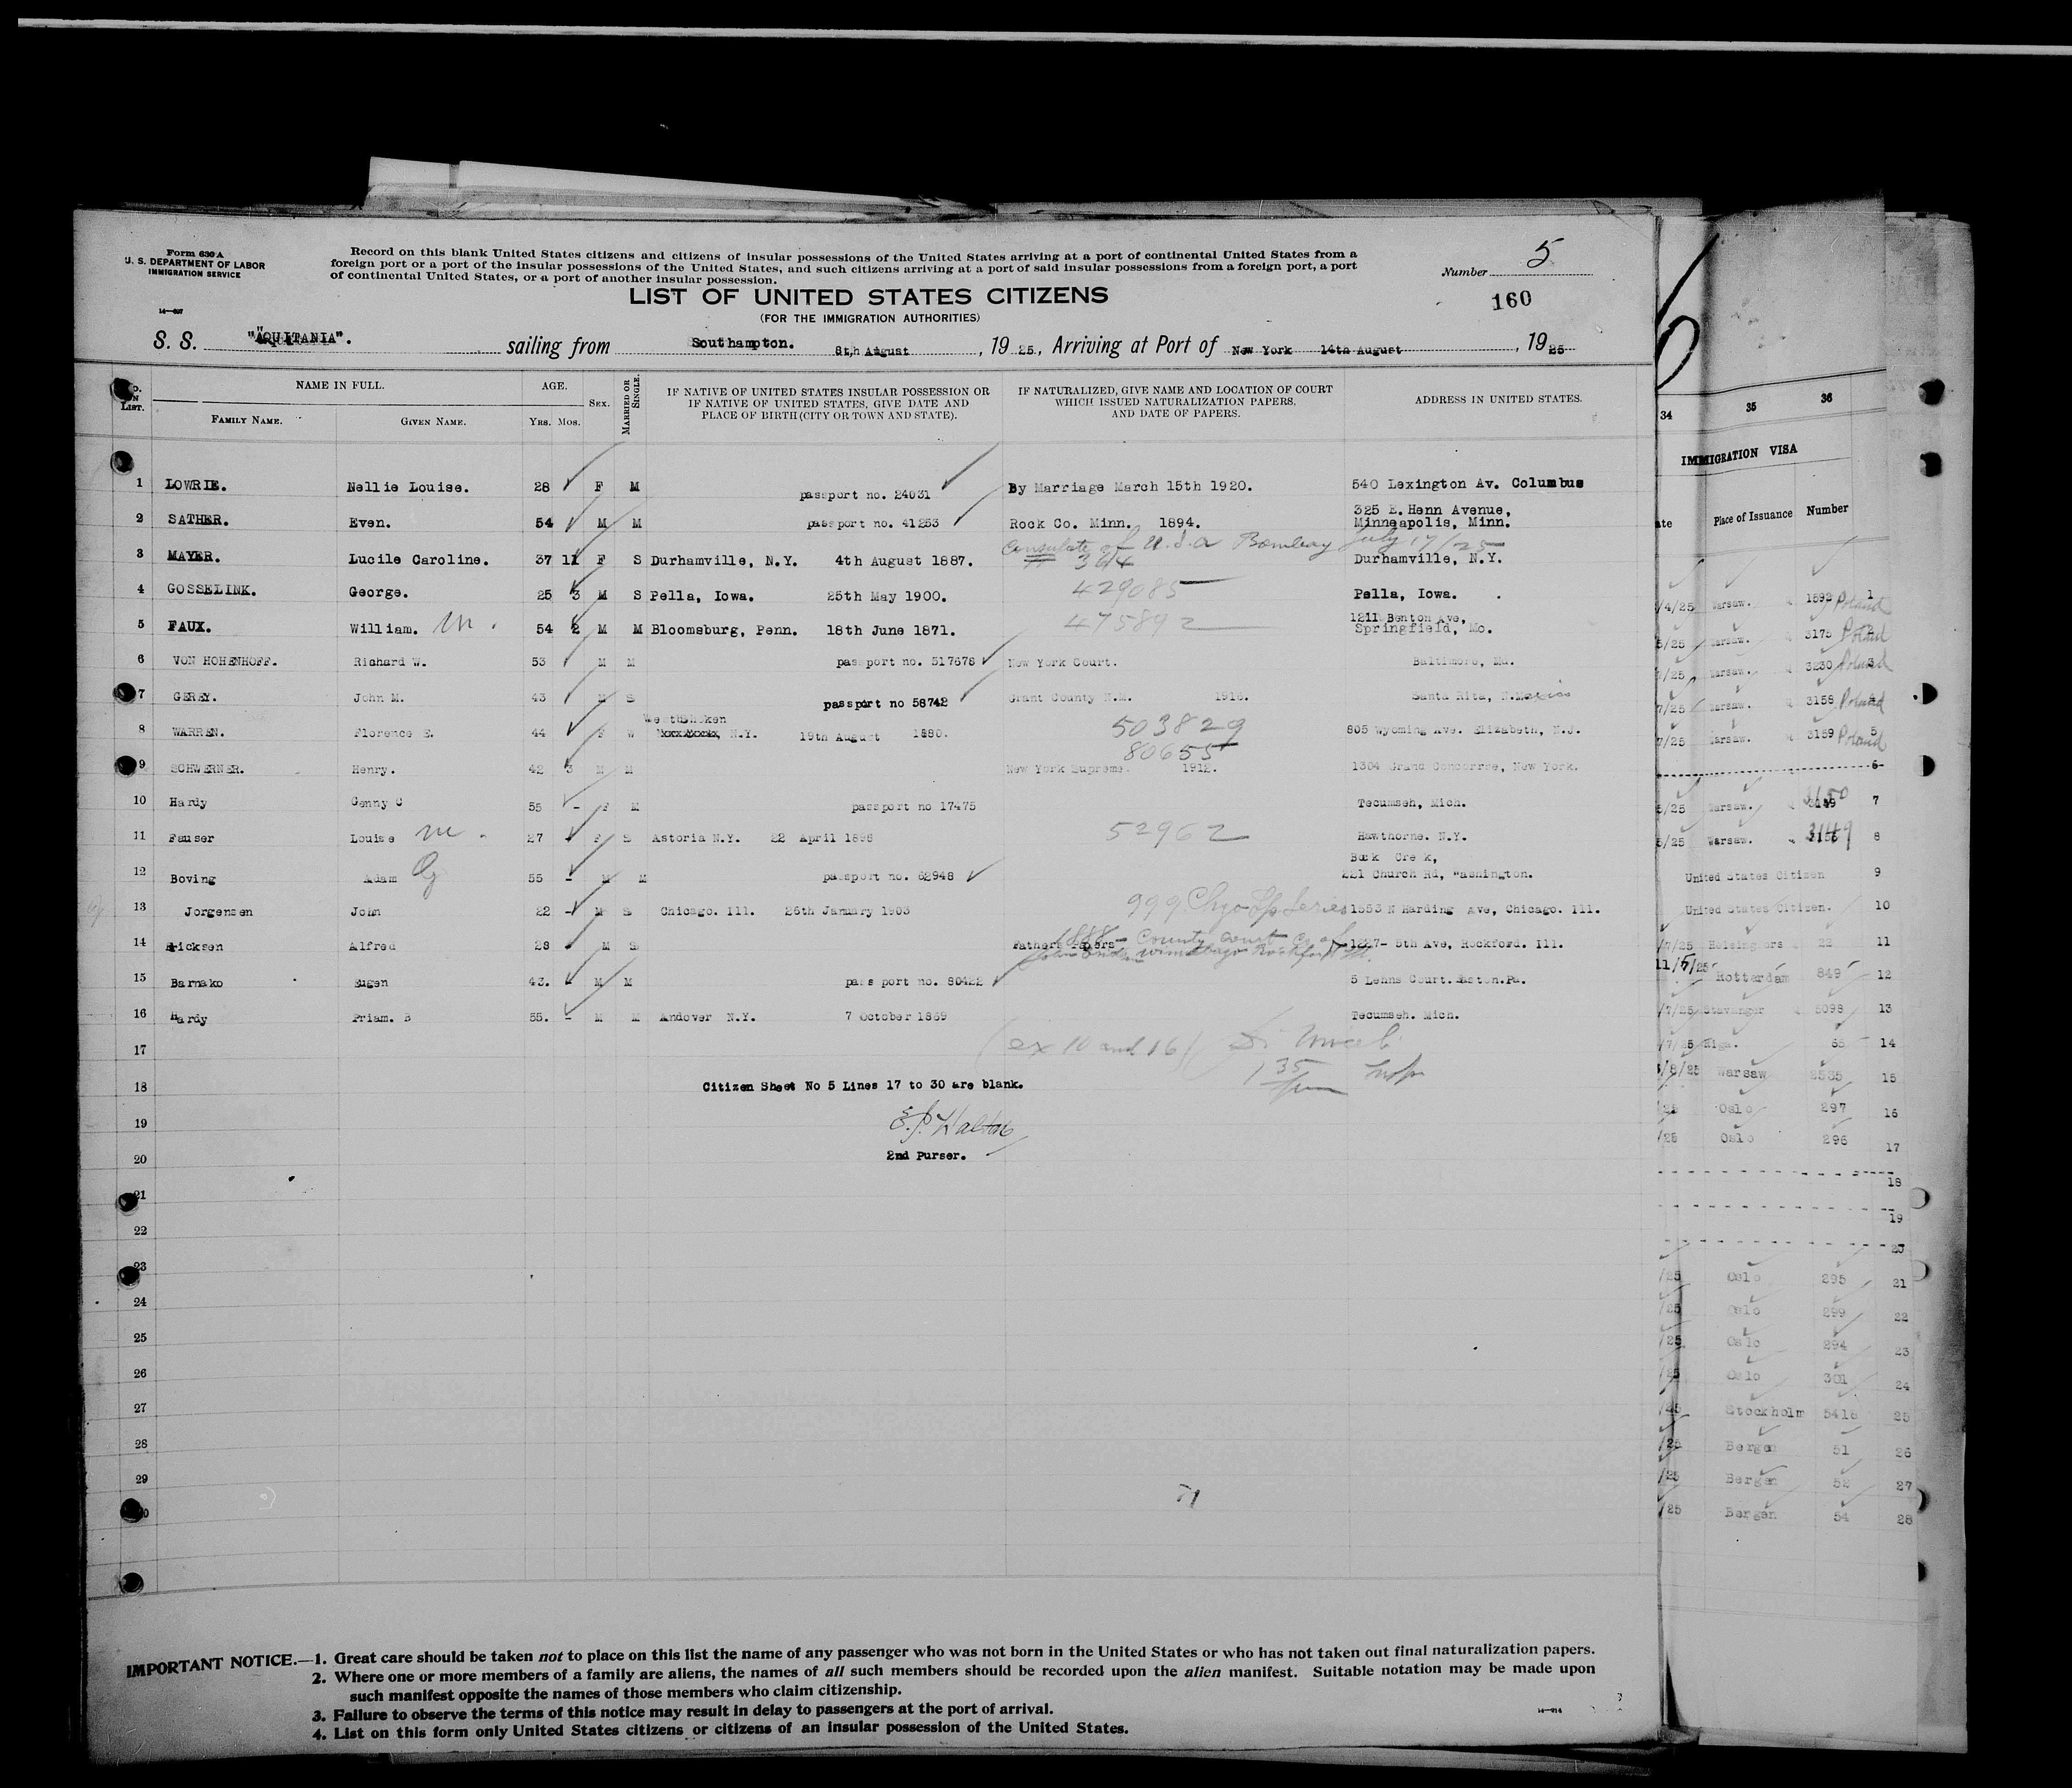 Form 630 A
U. S. DEPARTMENT OF LABOR
IMMIGRATION SERVICE
Record on this blank United States citizens and citizens of insular possessions of the United States arriving at a port of continental United States from a
foreign port or a port of the insular possessions of the United States, and such citizens arriving at a port of said insular possessions from a foreign port, a port
of continental United States, or a port of another insular possession.
Number 5
LIST OF UNITED STATES CITIZENS
160
(FOR THE IMMIGRATION AUTHORITIES)
S. S. "AQUITANIA". sailing from Southampton. 8th August , 19 25, Arriving at Port of New York 14th August , 19 25
No. on List. NAME IN FULL. AGE. SEX. MARRIED OR SINGLE. IF NATIVE OF UNITED STATES INSULAR POSSESSION OR IF NATIVE OF UNITED STATES, GIVE DATE AND PLACE OF BIRTH (CITY OR TOWN AND STATE). IF NATURALIZED, GIVE NAME AND LOCATION OF COURT WHICH ISSUED NATURALIZATION PAPERS, AND DATE OF PAPERS. ADDRESS IN UNITED STATES.
FAMILY NAME. GIVEN NAME. YRS. MOS.
1 LOWRIE. Nellie Louise. 28 F M passport no. 24031 By Marriage March 15th 1920. 540 Lexington Av. Columbus
2 SATHER. Even. 54 M M passport no. 41253 Rock Co. Minn. 1894. 325 E. Henn Avenue, Minneapolis, Minn.
Consulate of U.S.A Bombay July 17/25
3 MAYER. Lucile Caroline. 37 11 F S Durhamville, N.Y. 4th August 1887. 364 Durhamville, N.Y.
4 GOSSELINK. George. 25 3 M S Pella, Iowa. 25th May 1900. 429085 Pella, Iowa.
5 FAUX. William. M. 54 2 M M Bloomsburg, Penn. 18th June 1871. 475892 1211 Benton Ave, Springfield, Mo.
6 VON HOHENHOFF. Richard W. 53 M M passport no. 517678 New York Court. Baltimore, Md.
7 GEREY. John M. 43 M S passport no 58742 Grant County N.M. 1916. Santa Rita, N.Mexico
8 WARREN. Florence E. 44 F W N.Y. 19th August 1880. 503829 805 Wyoming Ave. Elizabeth, N.J.
80655
9 SCHWERNER. Henry. 42 3 M M New York Supreme. 1912. 1304 Grand Concorrse, New York.
10 Hardy Genny C 55 - F M passport no 17475 Tecumseh, Mich.
11 Fauser Louise M. 27 F S Astoria N.Y. 22 April 1898 52962 Hawthorne. N.Y.
12 Boving Adam 55 - M M passport no. 62948 Buck Creek, 221 Church Rd, Washington.
13 Jorgensen John 22 - M S Chicago. Ill. 26th January 1903 999 Chgo Series 1553 N Harding Ave, Chicago. Ill.
14 Ericksen Alfred 28 M S Fathers Papers 1888 County Court 1227- 5th Ave, Rockford. Ill.
15 Barnako Eugen 43. M M pass port no. 80422 5 Lehns Court. Easton. Pa.
16 Hardy Priam. B 55. - M M Andover N.Y. 7 October 1869 Tecumseh. Mich.
17 (ex 10 and 16)
135
18 Citizen Sheet No 5 Lines 17 to 30 are blank.
19 E.J. Walton
20 2nd Purser.
21
22
23
24
25
26
27
28
29
30
71
IMPORTANT NOTICE.—1. Great care should be taken not to place on this list the name of any passenger who was not born in the United States or who has not taken out final naturalization papers.
2. Where one or more members of a family are aliens, the names of all such members should be recorded upon the alien manifest. Suitable notation may be made upon
such manifest opposite the names of those members who claim citizenship.
3. Failure to observe the terms of this notice may result in delay to passengers at the port of arrival.
4. List on this form only United States citizens or citizens of an insular possession of the United States.
34 35 36
IMMIGRATION VISA
Place of Issuance Number
/4/25 Warsaw. 1592 Poland 1
5/25 Warsaw. 3175 Poland
7/25 Warsaw. 3230 Poland 3
7/25 Warsaw. 3158 Poland
7/25 Warsaw. 3159 Poland 5
6
5/25 Warsaw. 3150 7
5/25 Warsaw. 3149 8
United States Citizen 9
United States Citizen. 10
/7/25 Helsingfors 22 11
11/5/25 Rotterdam 849 12
/7/25 Stavanger 5098 13
/7/25 Riga. 65 14
4/8/25 Warsaw 2535 15
Oslo 297 16
/25 Oslo 296 17
18
19
20
/25 Oslo 295 21
/25 Oslo 299 22
/25 Oslo 294 23
/25 Oslo 301 24
/25 Stockholm 5416 25
/25 Bergen 51 26
/25 Bergen 52 27
/25 Bergen 54 28